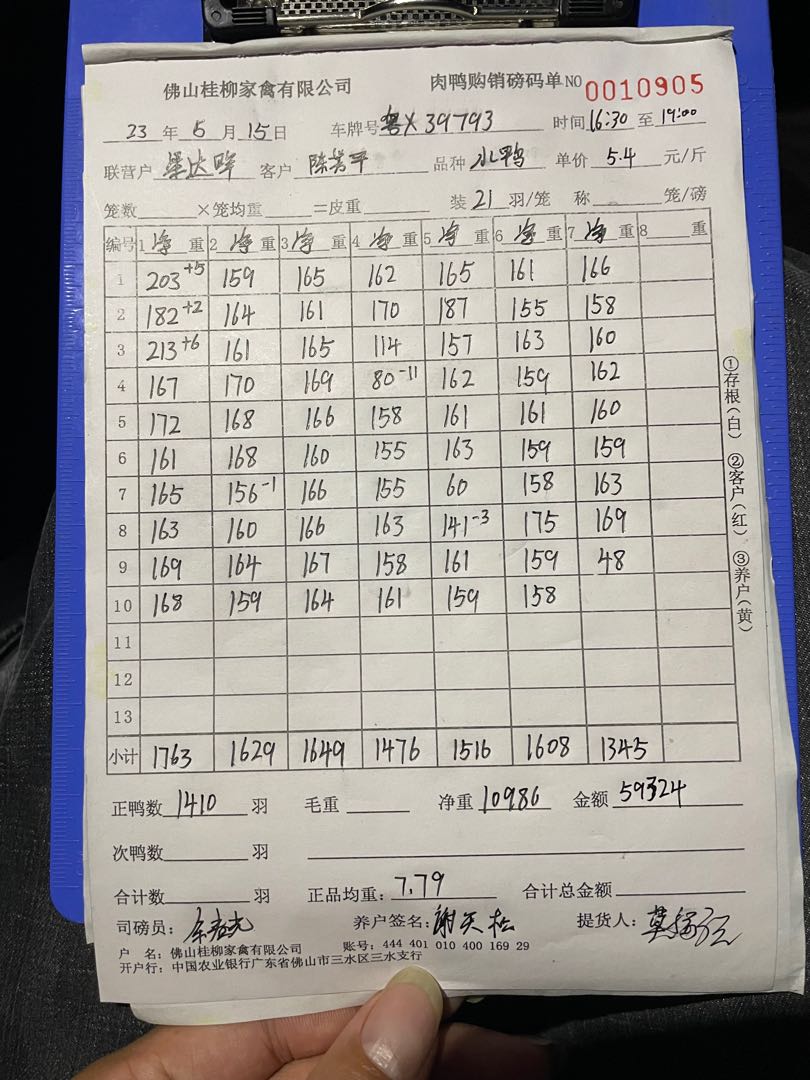 佛山桂柳家禽有限公司 肉鸭购销磅码单 NO 0010905
23 年 5 月 15 日 车牌号 粤X39793 时间 16:30 至 19:00
联营户 客户 陈芳平 品种 水鸭 单价 5.4 元/斤
笼数 ×笼均重 =皮重 装 21 羽/笼 称 笼/磅
编号 1 净 重 2 净 重 3 净 重 4 净 重 5 净 重 6 净 重 7 净 重 8 重
1 203+5 159 165 162 165 161 166
2 182+2 164 161 170 187 155 158
3 213+6 161 165 114 157 163 160
4 167 170 169 80-11 162 159 162
5 172 168 166 158 161 161 160
6 161 168 160 155 163 159 159
7 165 156-1 166 155 60 158 163
8 163 160 166 163 141-3 175 169
9 169 164 167 158 161 159 48
10 168 159 164 161 159 158
11
12
13
小计 1763 1629 1649 1476 1516 1608 1345
①存根(白) ②客户(红) ③养户(黄)
正鸭数 1410 羽 毛重 净重 10986 金额 59324
次鸭数 羽
合计数 羽 正品均重: 7.79 合计总金额
司磅员: 养户签名: 谢天松 提货人:
户 名: 佛山桂柳家禽有限公司 账号: 444 401 010 400 169 29
开户行: 中国农业银行广东省佛山市三水区三水支行